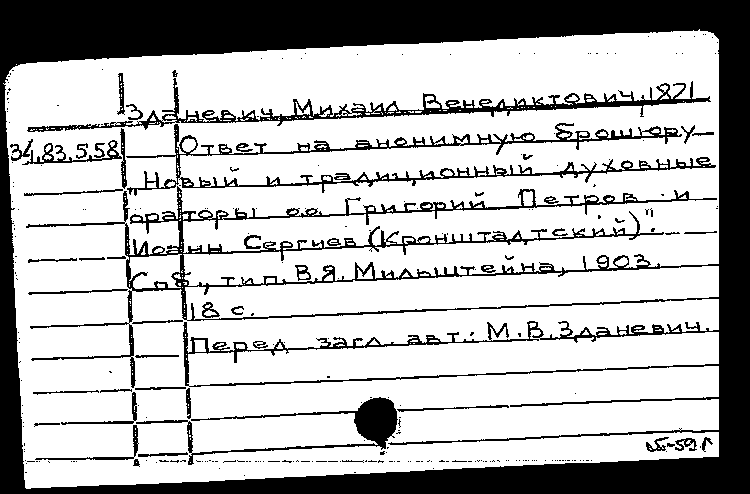 Зданевич, Михаил Венедиктович, 1871
34.83.5.58 Ответ на анонимную брошюру
"Новый и традиционный духовные
ораторы о.о. Григорий Петров и
Иоанн Сергиев (Кронштадтский)".
Спб., тип. В.Я. Мильштейна, 1903.
18 с.
Перед загл. авт.: М.В. Зданевич.